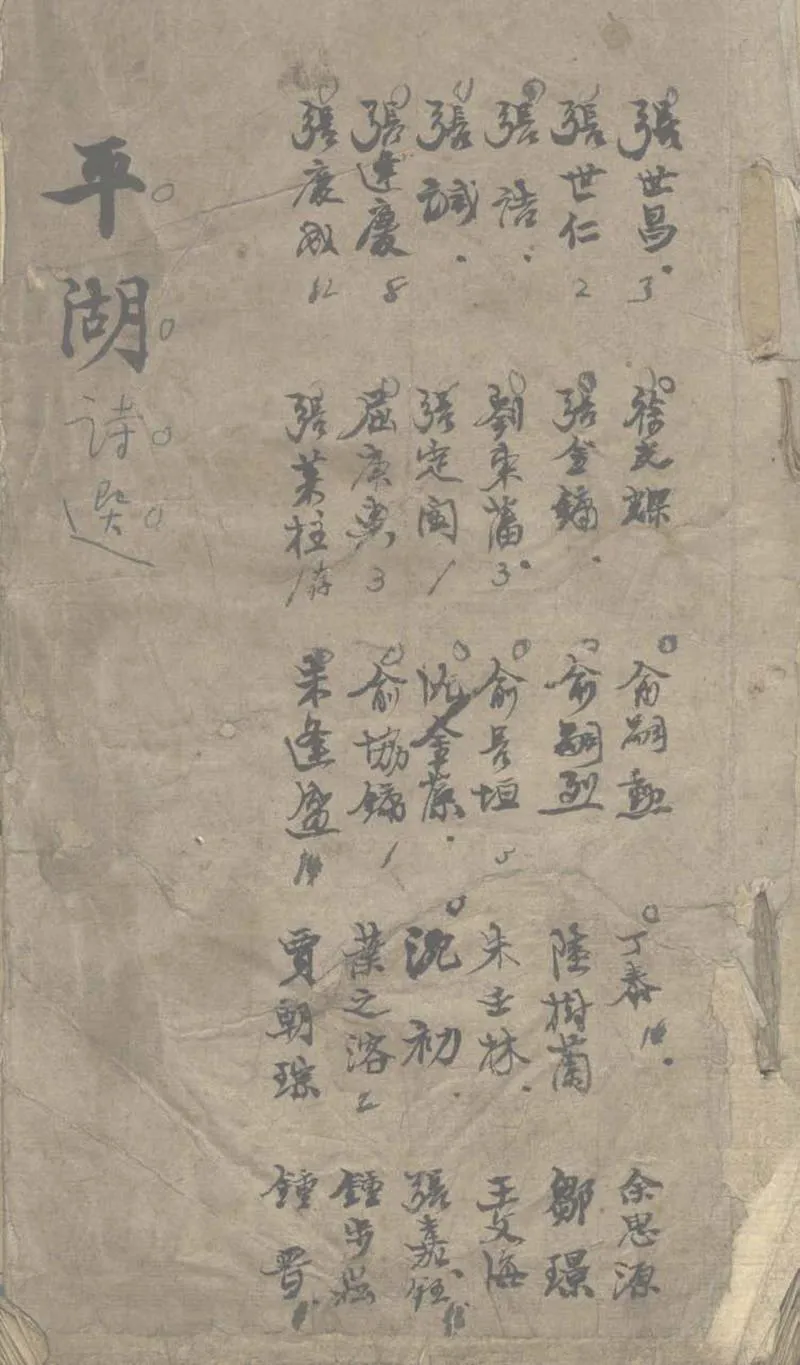 張世昌 3
張世仁 2
張誥
張誠
張逢慶 8
張慶成 12
徐光燦
張金鏞
劉東藩 3
張定閏 1
屈庚興 3
張萊柱
俞嗣勳
俞嗣烈
俞長垣 5
沈金藻
俞協鏞 1
朱逢盛
丁泰
陸樹蘭
朱壬林
沈初
葉之溶 2
賈朝琮
余思源
鄒璟
王文海
張嘉鈺
鍾步崧
鍾晋
平湖詩選